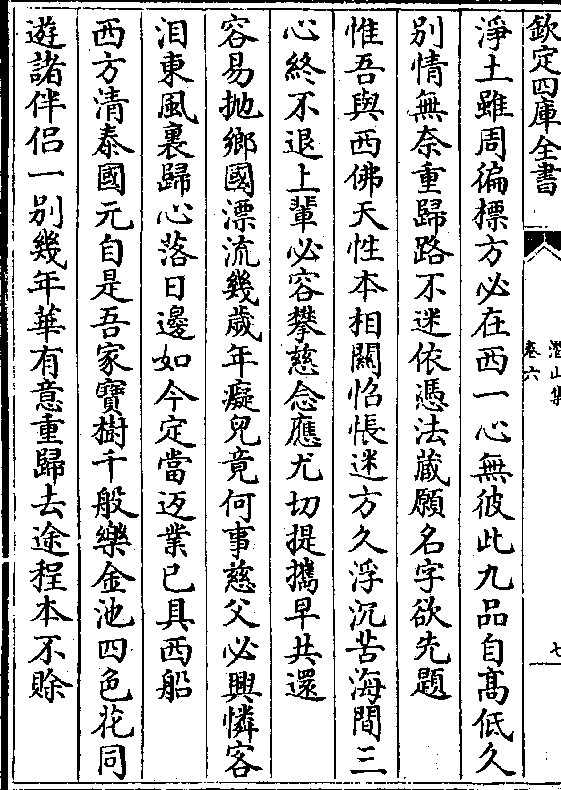 欽定四庫全書
潛山集
卷六
七
淨土雖周徧標方必在西一心無彼此九品自髙低久
别情無奈重歸路不迷依憑法藏願名字欲先題
惟吾與西佛天性本相關怊悵迷方久浮沉苦海間三
心終不退上軰必容攀慈念應尤切提攜早共還
容易抛鄉國漂流幾歲年癡兒竟何事慈父必興憐客
泪東風裏歸心落日邊如今定當迈業已具西船
西方清泰國元自是吾家寶樹千般樂金池四色花同
遊諸伴侶一别幾年華有意重歸去途程本不賖